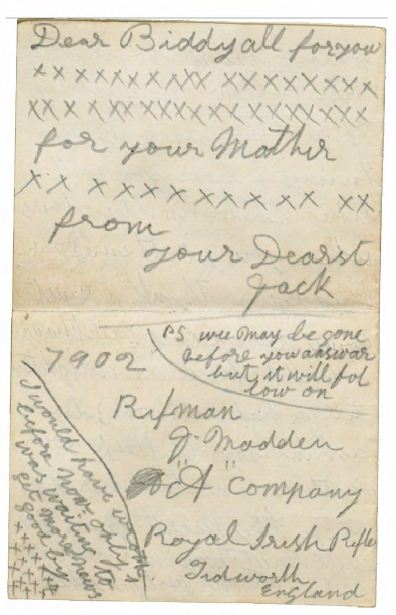 Dear Biddy all for you
x x x x x x x x x x x x x x x x x
x x x x x x x x x x x x x x x x x
for your Mather
x x x x x x x x x x x x x
from
your Dearst
Jack
PS wee May be gone
before you answar
but it will fol
low on
7902
Rifman
J Madden
"A" Company
Royal Irish Rifle
Tidworth
England
I would have wrote
before now only i
was waiting to
get more news
good by
x x x x
x x x x
x x x x